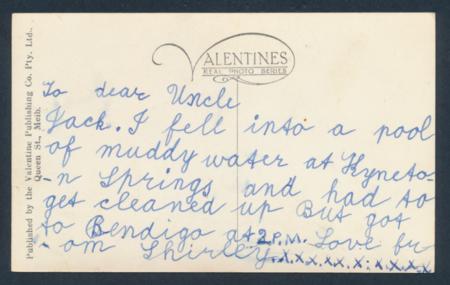 Published by the Valentine Publishing Co. Pty. Ltd.,
Queen St., Melb.
VALENTINES
REAL PHOTO SERIES
To dear Uncle
Jack. I fell into a pool
of muddy water at Kyneto-
-n Springs and had to
get cleaned up But got
to Bendigo at 2 P.M. Love fr
-om Shirley.x.x.x.x.x.x.x.x.x